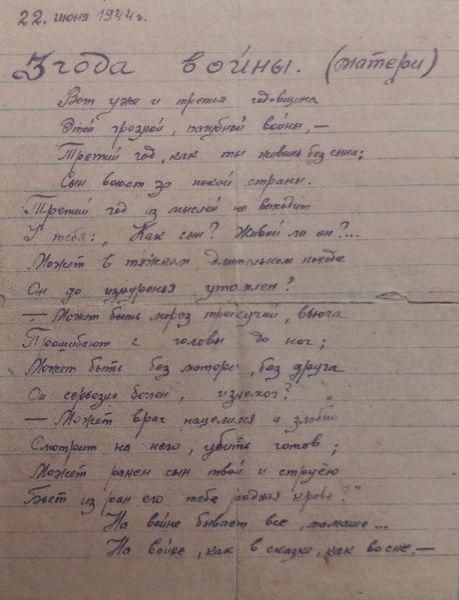 22. июня 1944 г.
3 года войны. (матери)
Вот уже и третья годовщина
Этой грозной, пагубной войны, —
Третий год, как ты живёшь без сына;
Сын воюет за покой страны.
Третий год из мыслей не выходит
У тебя: „Как сын? Живой ли он?...
Может в тяжком длительном походе
Он до изнуренья утомлен?
— Может быть мороз трескучий, вьюга
Прошибают с головы до ног;
Может быть без матери, без друга
Он серьезно болен, изнемог?
— Может враг нацелился и злобно
Смотрит на него, убить готов;
Может ранен сын твой и струёю
Бьет из ран его тебе родная кровь?"
На войне бывает все, мамаша...
На войне, как в сказке, как во сне, —